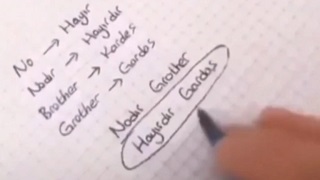 No → Hayır
Nodir → Hayırdır
Brother → Kardeş
Grother → Gardaş
Nodir Grother
Hayırdır Gardaş